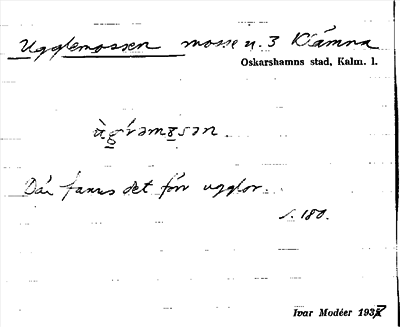 Ugglemossen mosse u. 3 Klämna
Oskarshamns stad, Kalm. l.
ùg̲ləmo̲sən
Där fanns det förr ugglor.
s. 180.
Ivar Modéer 1937